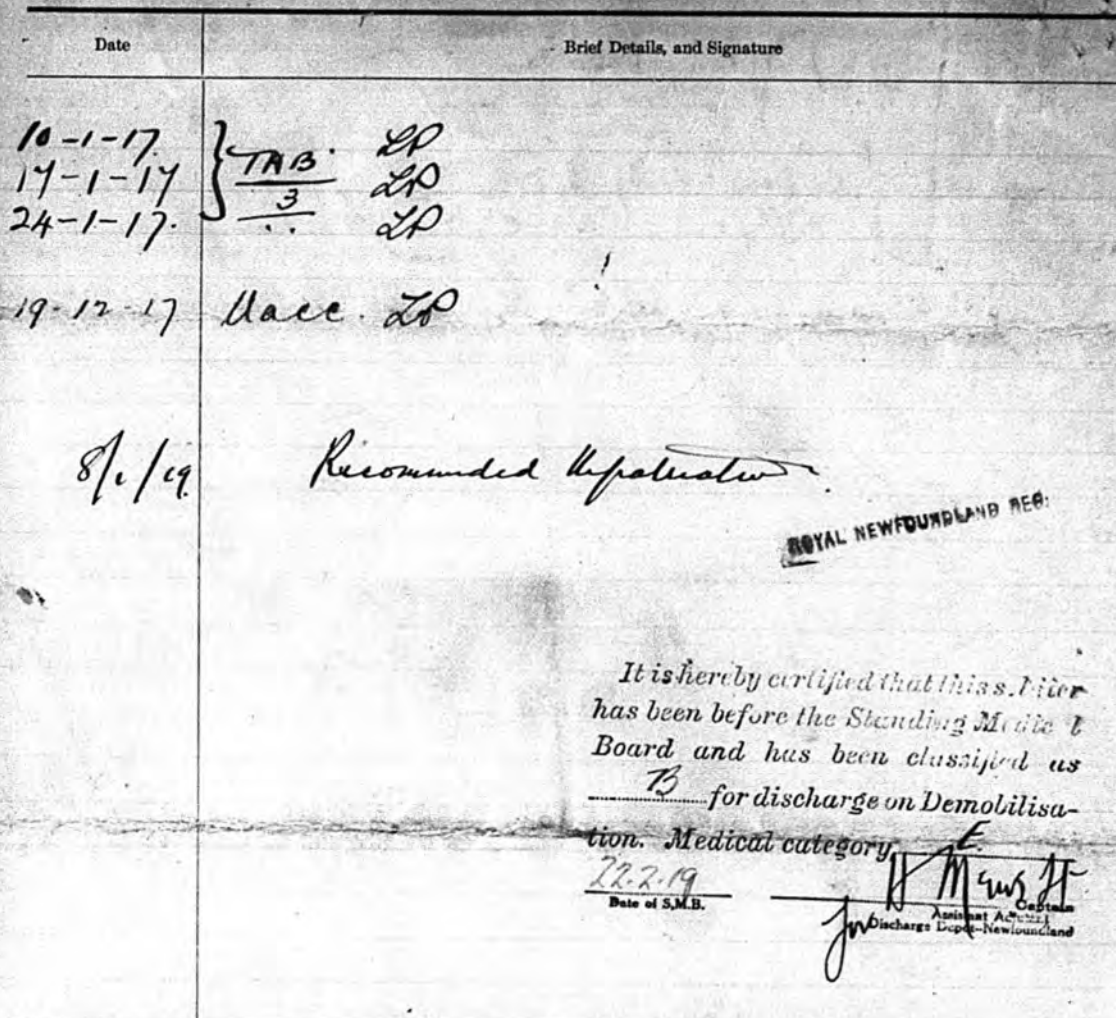 Date Brief Details, and Signature
10-1-17. TAB. LP
17-1-17 3 LP
24-1-17. .. LP
19-12-17 Vacc. LP
8/1/19 Recommended Repatriation.
ROYAL NEWFOUNDLAND REG.
It is hereby certified that this soldier
has been before the Standing Medical
Board and has been classified as
B for discharge on Demobilisa-
tion. Medical category E.
22.2.19
Date of S.M.B. Captain
for Assistant Adjutant
Discharge Depot-Newfoundland